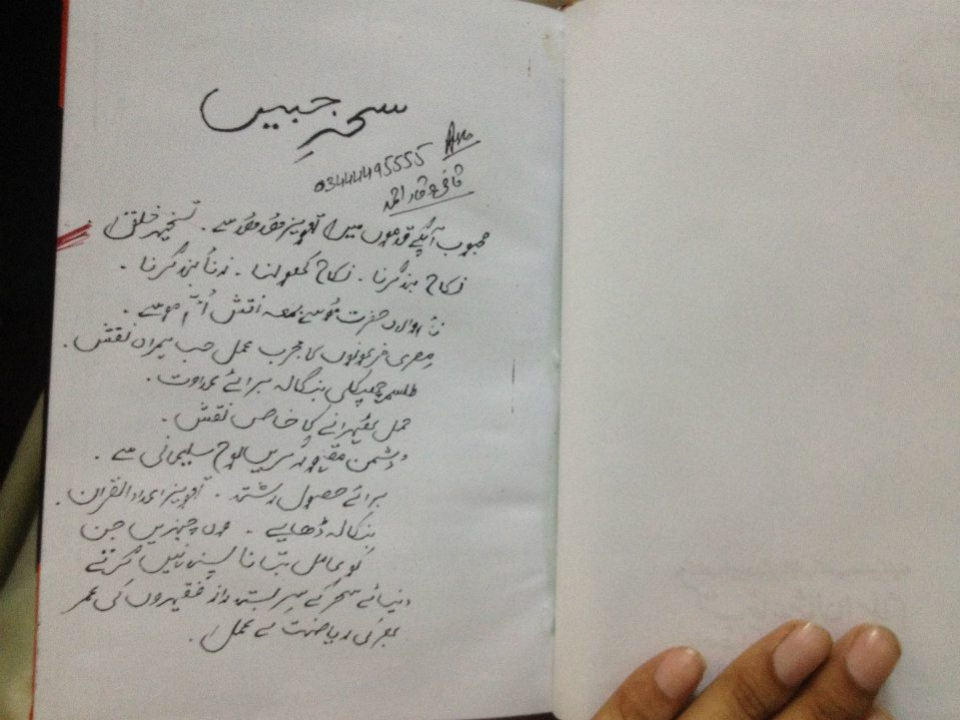 سحرِ جبیں
03444495555
قاضی وقار احمد
محبوب آپکے قدموں میں تعویز مقد مقد سے۔ تسخیر خلق
نکاح بند کرنا۔ نکاح کھولنا۔ زنا بند کرنا۔
اولاد حضرت موسے بمعہ نقش
مصری فرعونوں کا مجرب عمل حب ہمراہ نقش۔
طلسم چھپکلی بنگالہ برائے عداوت۔
حمل ٹھہرانے کا خاص نقش۔
دشمن لوح سلیمانی سے۔
برائے حصول رشتہ۔ تعویز اعداد القران۔
بنگالہ ڈھایے۔ وہ چیزیں جن
کو عامل بتانا پسند نہیں کرتے
دنیائے سحر کے سر بستہ راز فقیروں کی عمر
بھر کی ریاضت کے عمل